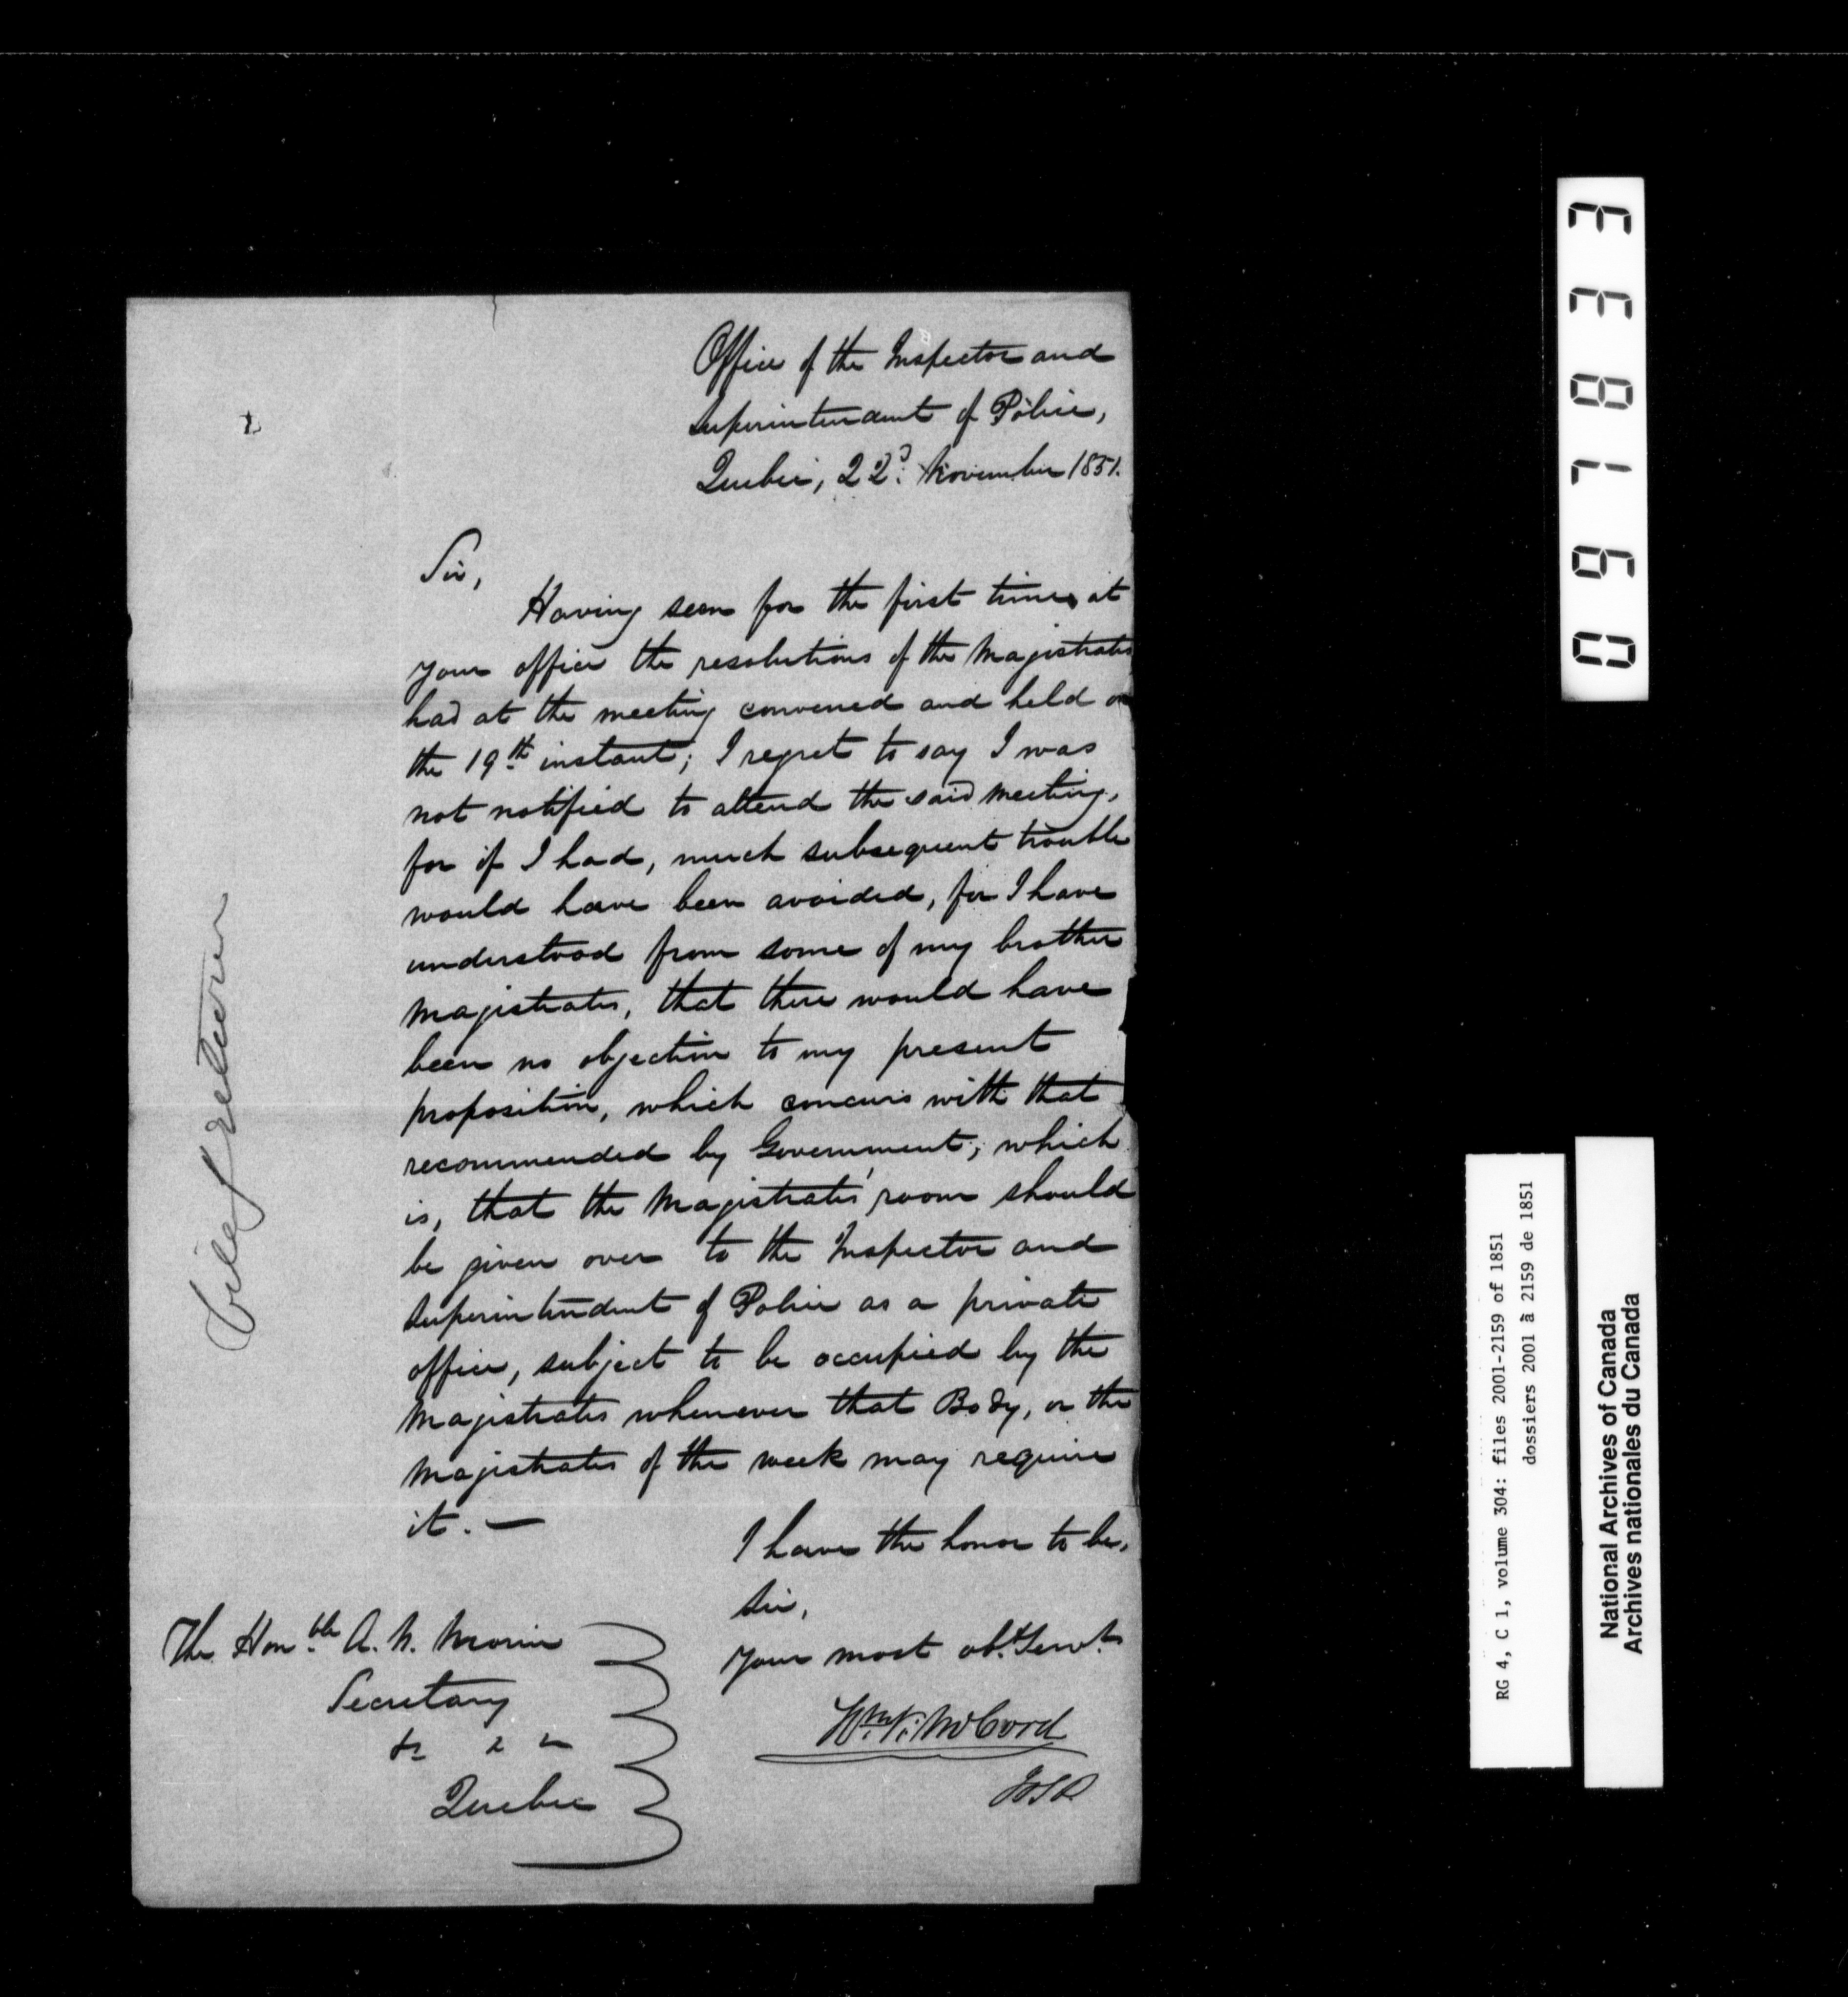 Office of the Inspector and
Superintendent of Police,
Quebec, 22d. November 1851.
Sir,
Having seen for the first time, at
your office the resolutions of the Magistrates
had at the meeting convened and held on
the 19th instant; I regret to say I was
not notified to attend the said meeting,
for if I had, much subsequent trouble
would have been avoided, for I have
understood from some of my brother
magistrates, that there would have
been no objection to my present
proposition, which concurs with that
recommended by Government; which
is, that the Magistrates' room should
be given over to the Inspector and
Superintendent of Police as a private
office, subject to be occupied by the
Magistrates whenever that Body, or the
Magistrates of the week may require
it. —
I have the honor to be,
Sir,
Your most obt. Servt.
Wm. K. McCord
I & S P
The Honble A. N. Morin
Secretary
&c &c &c
Quebec
067833
RG 4, C 1, volume 304: files 2001-2159 of 1851
dossiers 2001 à 2159 de 1851
National Archives of Canada
Archives nationales du Canada